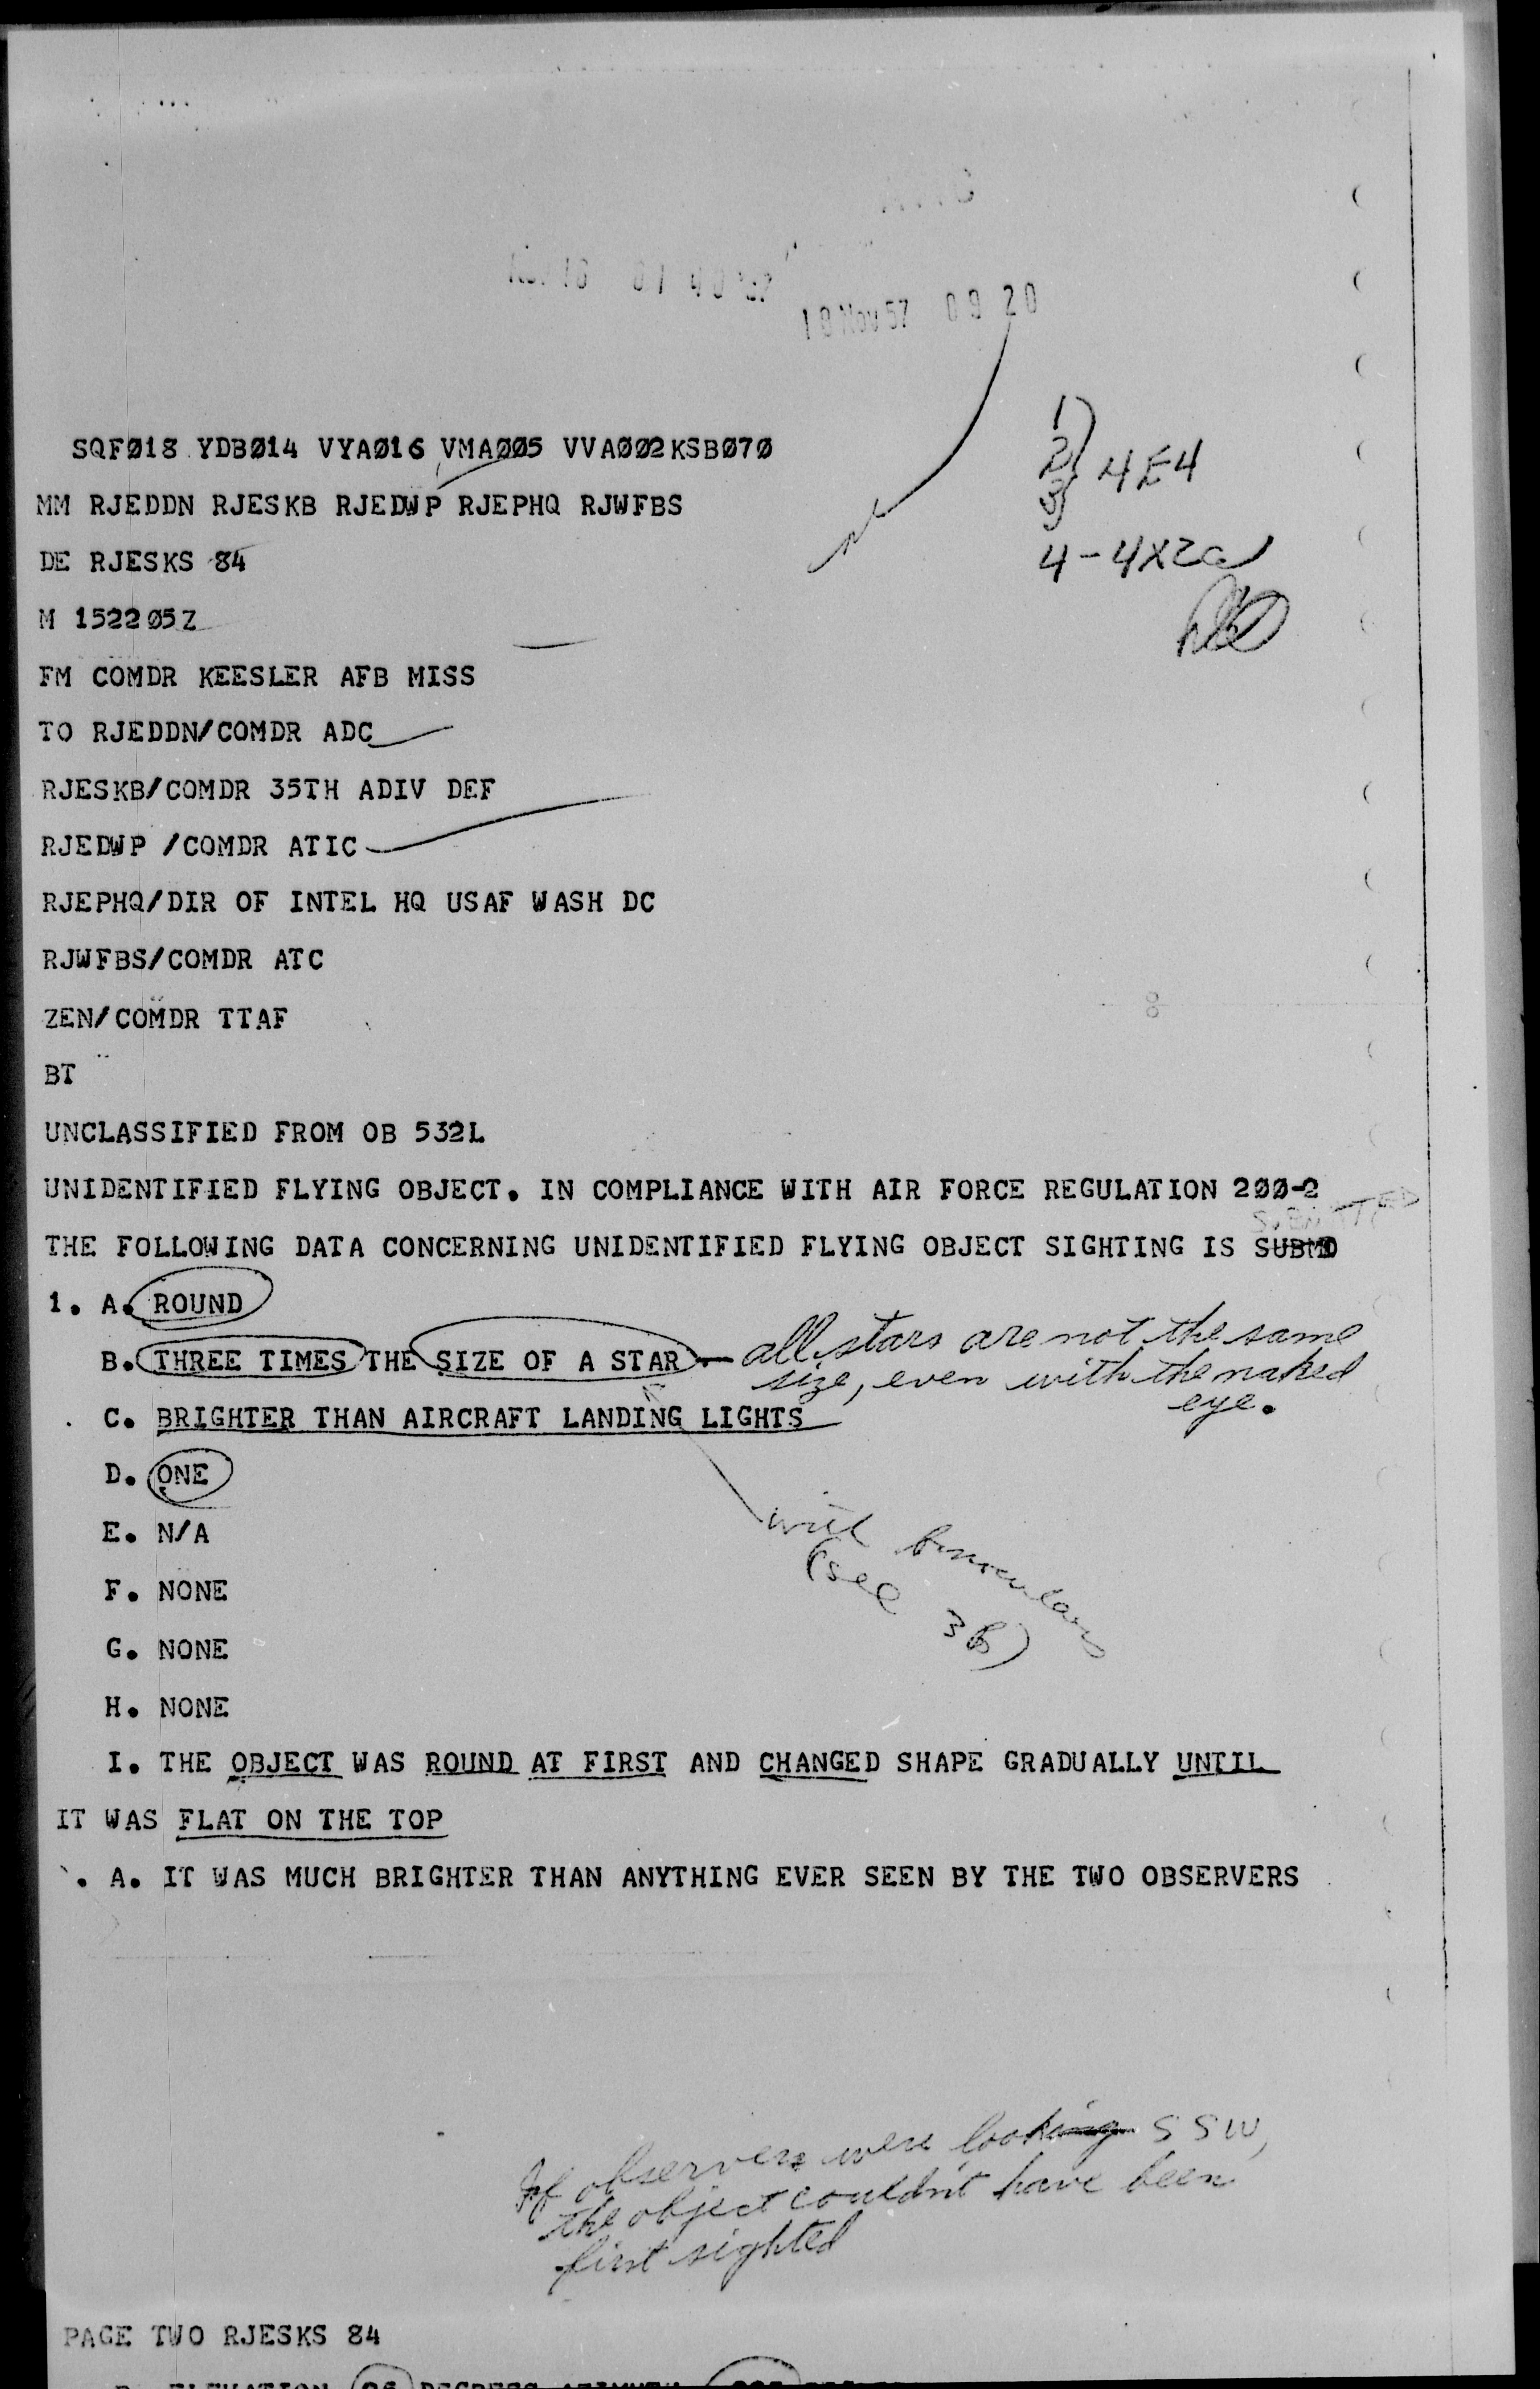 18 Nov 57 09 20
1)
2) 4E4
3)
4-4X2a
SQFØ18 YDBØ14 VYAØ16 VMAØØ5 VVAØØ2KSBØ7Ø
MM RJEDDN RJESKB RJEDWP RJEPHQ RJWFBS
DE RJESKS 84
M 1522Ø5Z
FM COMDR KEESLER AFB MISS
TO RJEDDN/COMDR ADC
RJESKB/COMDR 35TH ADIV DEF
RJEDWP /COMDR ATIC
RJEPHQ/DIR OF INTEL HQ USAF WASH DC
RJWFBS/COMDR ATC
ZEN/COMDR TTAF
BT
UNCLASSIFIED FROM OB 532L
UNIDENTIFIED FLYING OBJECT. IN COMPLIANCE WITH AIR FORCE REGULATION 2ØØ-2
SUBMITTED
THE FOLLOWING DATA CONCERNING UNIDENTIFIED FLYING OBJECT SIGHTING IS SUBMD
1. A. ROUND
B. THREE TIMES THE SIZE OF A STAR — all stars are not the same
size, even with the naked
eye.
C. BRIGHTER THAN AIRCRAFT LANDING LIGHTS
D. ONE
with binoculars
(see 3B)
E. N/A
F. NONE
G. NONE
H. NONE
I. THE OBJECT WAS ROUND AT FIRST AND CHANGED SHAPE GRADUALLY UNTIL
IT WAS FLAT ON THE TOP
. A. IT WAS MUCH BRIGHTER THAN ANYTHING EVER SEEN BY THE TWO OBSERVERS
If observers were looking SSW,
the object couldn't have been
first sighted
PAGE TWO RJESKS 84